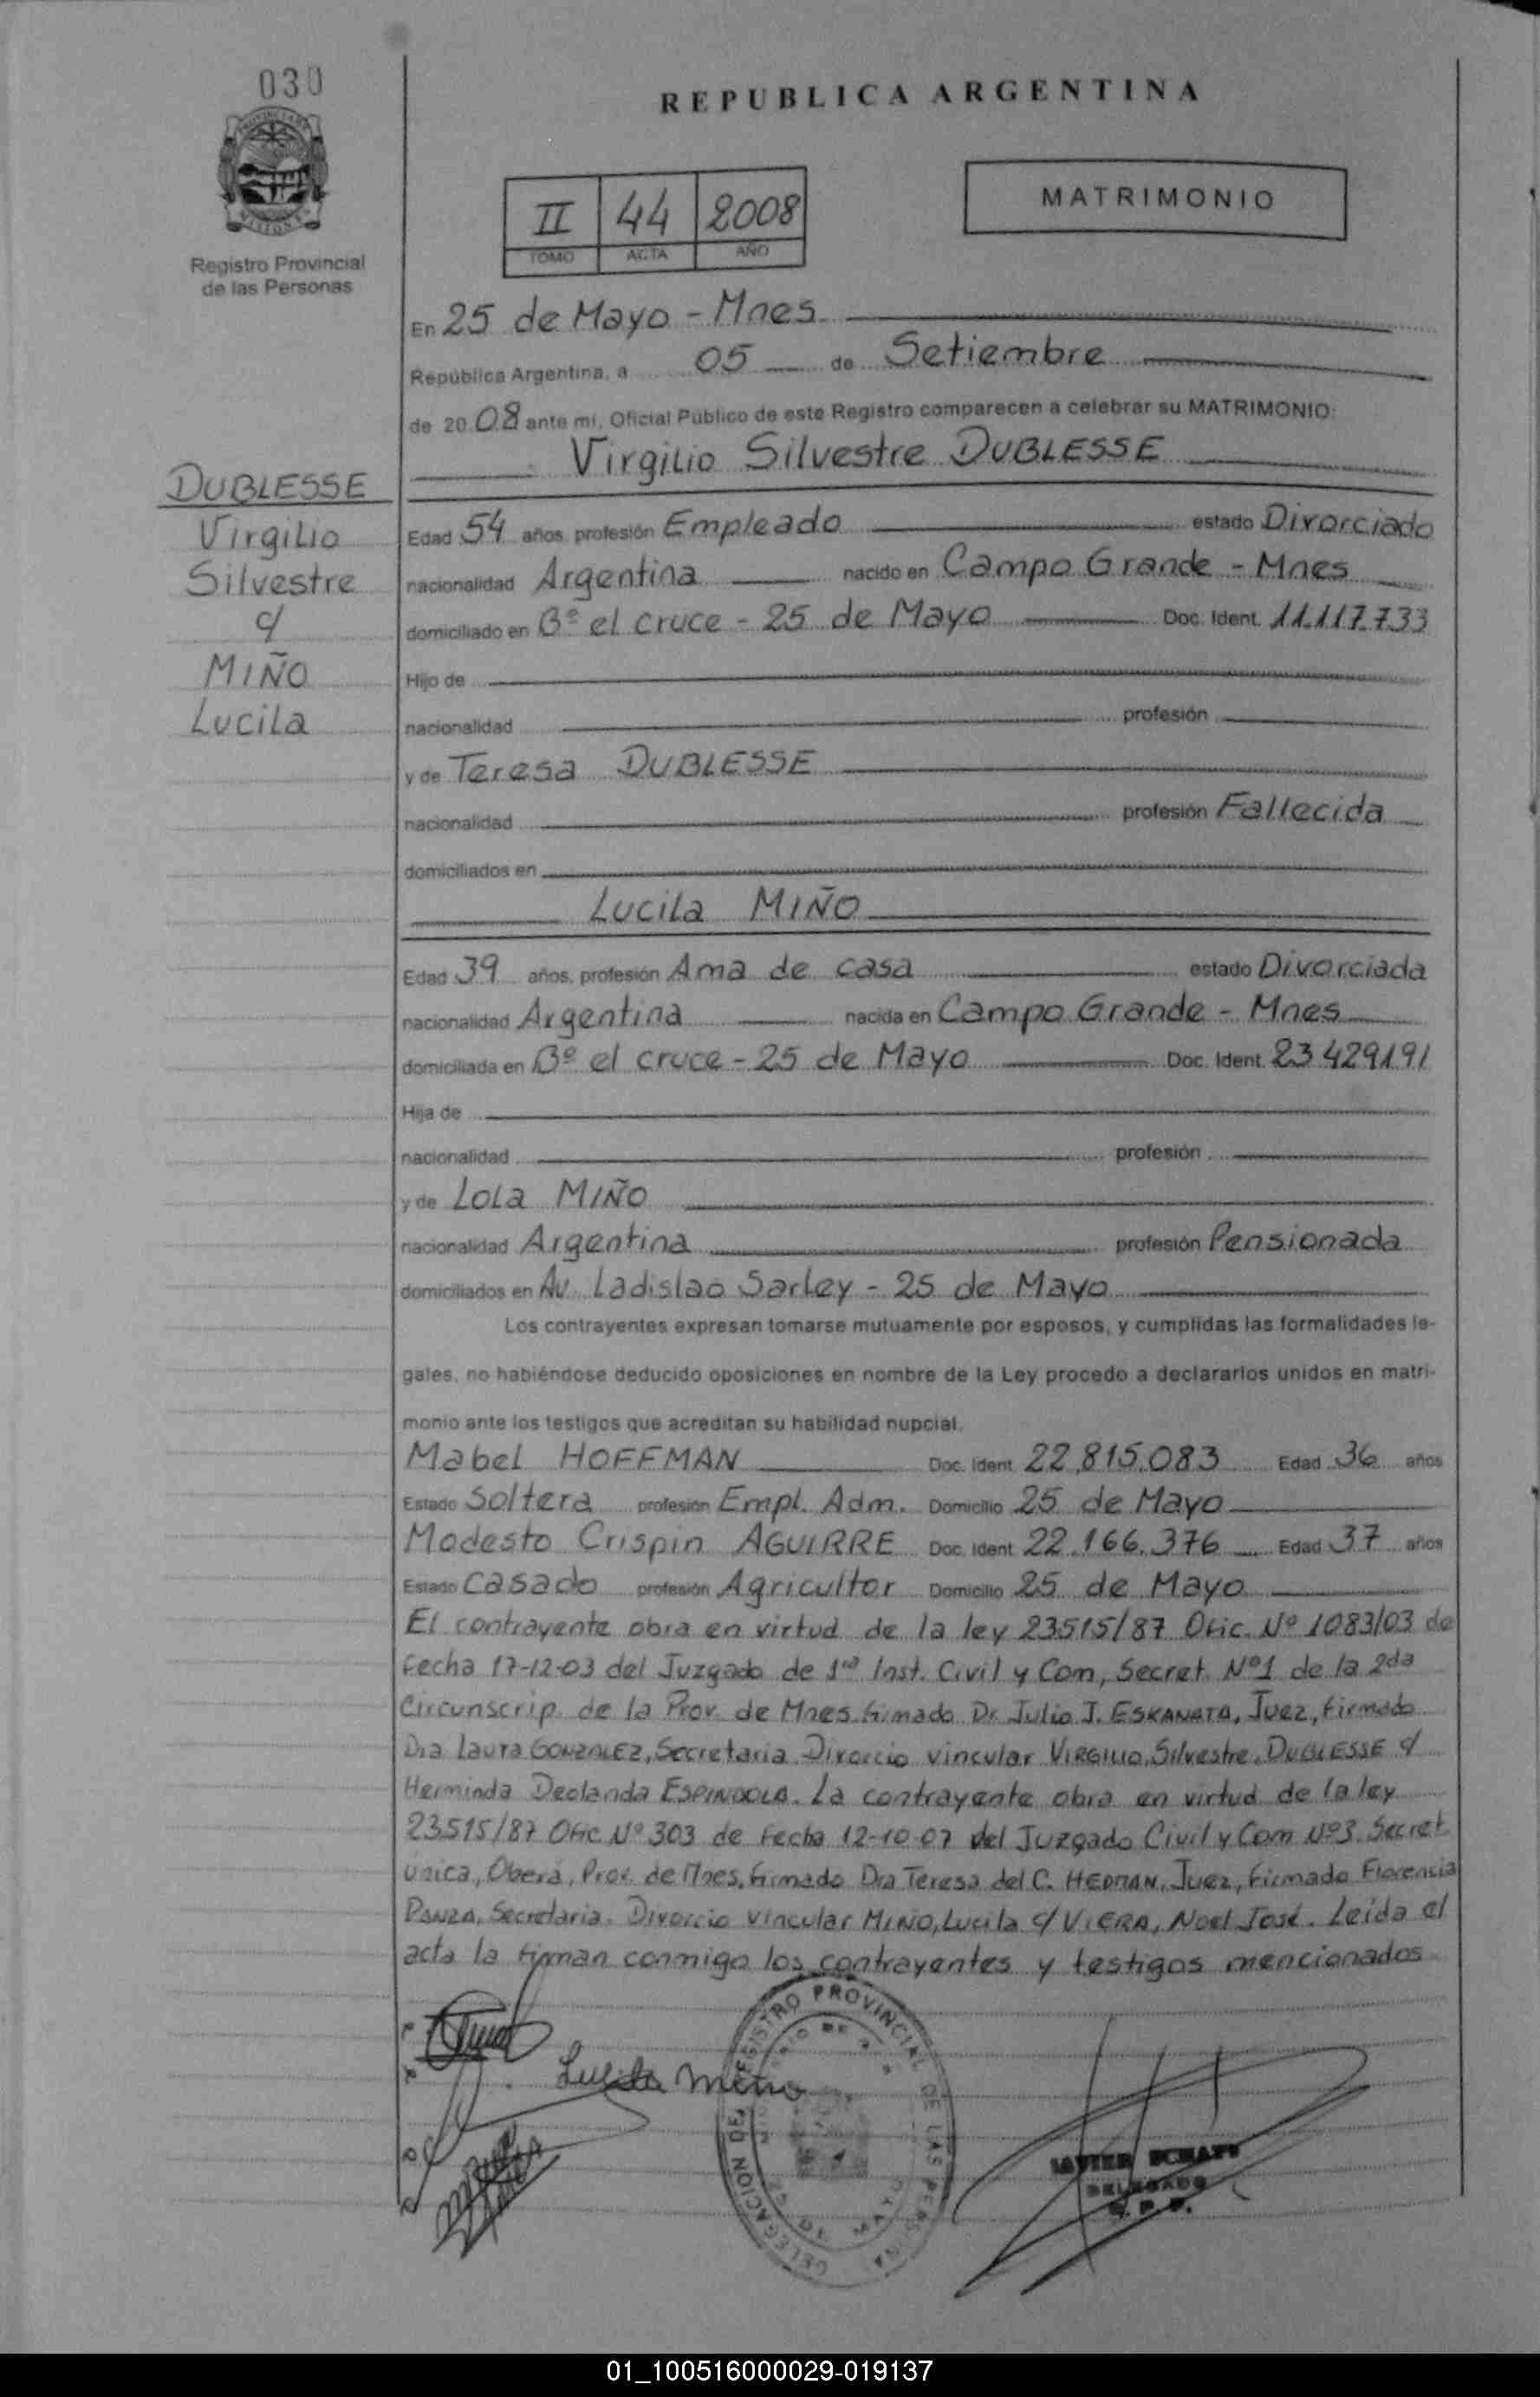 030
REPUBLICA ARGENTINA
II 44 2008
TOMO ACTA AÑO
MATRIMONIO
Registro Provincial
de las Personas
En 25 de Mayo - Mnes
República Argentina, a 05 de Setiembre
de 2008 ante mi, Oficial Público de este Registro comparecen a celebrar su MATRIMONIO:
Virgilio Silvestre DUBLESSE
DUBLESSE
Virgilio
Silvestre
c/
MIÑO
Lucila
Edad 54 años profesión Empleado estado Divorciado
nacionalidad Argentina nacido en Campo Grande - Mnes
domiciliado en Bº el cruce - 25 de Mayo Doc. Ident. 11.117.733
Hijo de
nacionalidad profesión
y de Teresa DUBLESSE
nacionalidad profesión Fallecida
domiciliados en
Lucila MIÑO
Edad 39 años, profesión Ama de casa estado Divorciada
nacionalidad Argentina nacida en Campo Grande - Mnes
domiciliada en Bº el cruce - 25 de Mayo Doc. Ident. 23 429191
Hija de
nacionalidad profesión
y de Lola MIÑO
nacionalidad Argentina profesión Pensionada
domiciliados en Av. Ladislao Sarley - 25 de Mayo
Los contrayentes expresan tomarse mutuamente por esposos, y cumplidas las formalidades le-
gales, no habiéndose deducido oposiciones en nombre de la Ley procedo a declararlos unidos en matri-
monio ante los testigos que acreditan su habilidad nupcial.
Mabel HOFFMAN Doc. Ident 22.815.083 Edad 36 años
Estado Soltera profesión Empl. Adm. Domicilio 25 de Mayo
Modesto Crispin AGUIRRE Doc. Ident 22.166.376 Edad 37 años
Estado Casado profesión Agricultor Domicilio 25 de Mayo
El contrayente obra en virtud de la ley 23515/87 Ofic. Nº 1083/03 de
Fecha 17-12-03 del Juzgado de 1ra Inst. Civil y Com, Secret. Nº1 de la 2da
Circunscrip. de la Prov. de Mnes. firmado Dr Julio J. ESKANATA, Juez, firmado
Dra Laura GONZALEZ, Secretaria. Divorcio vincular VIRGILIO, Silvestre, DUBLESSE c/
Herminda Deolanda ESPINDOLA. La contrayente obra en virtud de la ley
23515/87 Ofic Nº 303 de fecha 12-10-07 del Juzgado Civil y Com Nº3. Secret
Unica, Oberá, Prov. de Mnes, firmado Dra Teresa del C. HEDMAN, Juez, firmado Florencia
PANZA, Secretaria. Divorcio vincular MIÑO, Lucila c/ VIERA, Noel José. Leida el
acta la firman conmigo los contrayentes y testigos mencionados
Lucila Miño
DELEGACION DEL REGISTRO PROVINCIAL DE LAS PERSONAS
DELEGADO
01_100516000029-019137